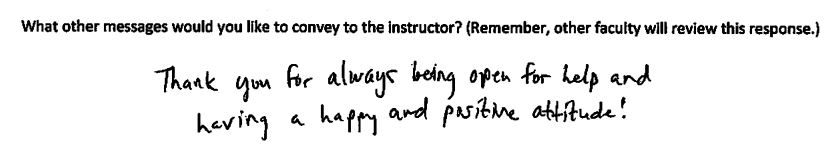 What other messages would you like to convey to the instructor? (Remember, other faculty will review this response.)
Thank you for always being open for help and
having a happy and positive attitude!